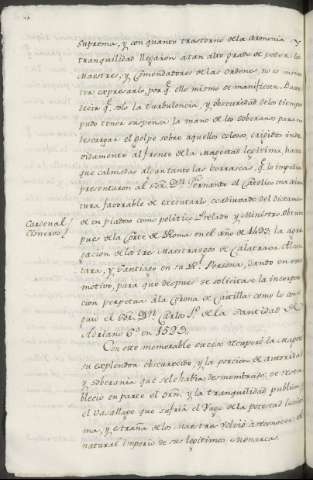 Suprema, y con quanto trastorno de la Armonia y
tranquilidad llegaron a tan alto grado de poder los
Maestres, y Comendadores de las Ordenes, no es
expresarlo, por q.e ello mismo se manifiesta. Basta
decir q.e solo la turbulencia, y obscuridad de los tiempos
pudo tener suspensa la mano de los soberanos para
descargar el golpe sobre aquellos colosos, erigidos
al frente de la Magestad legitima, hasta
que calmadas algun tanto las borrascas, q.e lo impedian
presentaron al Sor. Dn. Fernando el Catolico
favorable de executarlo
de un piadoso como politico Prelado y Ministro
Cardenal Cisneros
pues de la Corte de Roma en el año de
de los tres Maestrazgos de Calatrava, Alcan
tara, y Santiago en su Rl. Persona, dando en esto
motivo, para que despues se solicitase la incorpo
racion perpetua a la Corona de Castilla como lo consi
guió el Sor. Dn. Carlos 1.º de la Santidad de
Adriano 6.º en 1523.
Con este memorable suceso recuperó la
su explendor obscurecido, y la porcion de autoridad
y soberania que se le habia desmembrado: se resta
bleció en parte el orñ. y la tranquilidad publica,
el Vasallage que sufria el Yugo de la potestad
y estraña de los Maestres volvió a reconocer el
natural imperio de sus legitimos Monarcas.